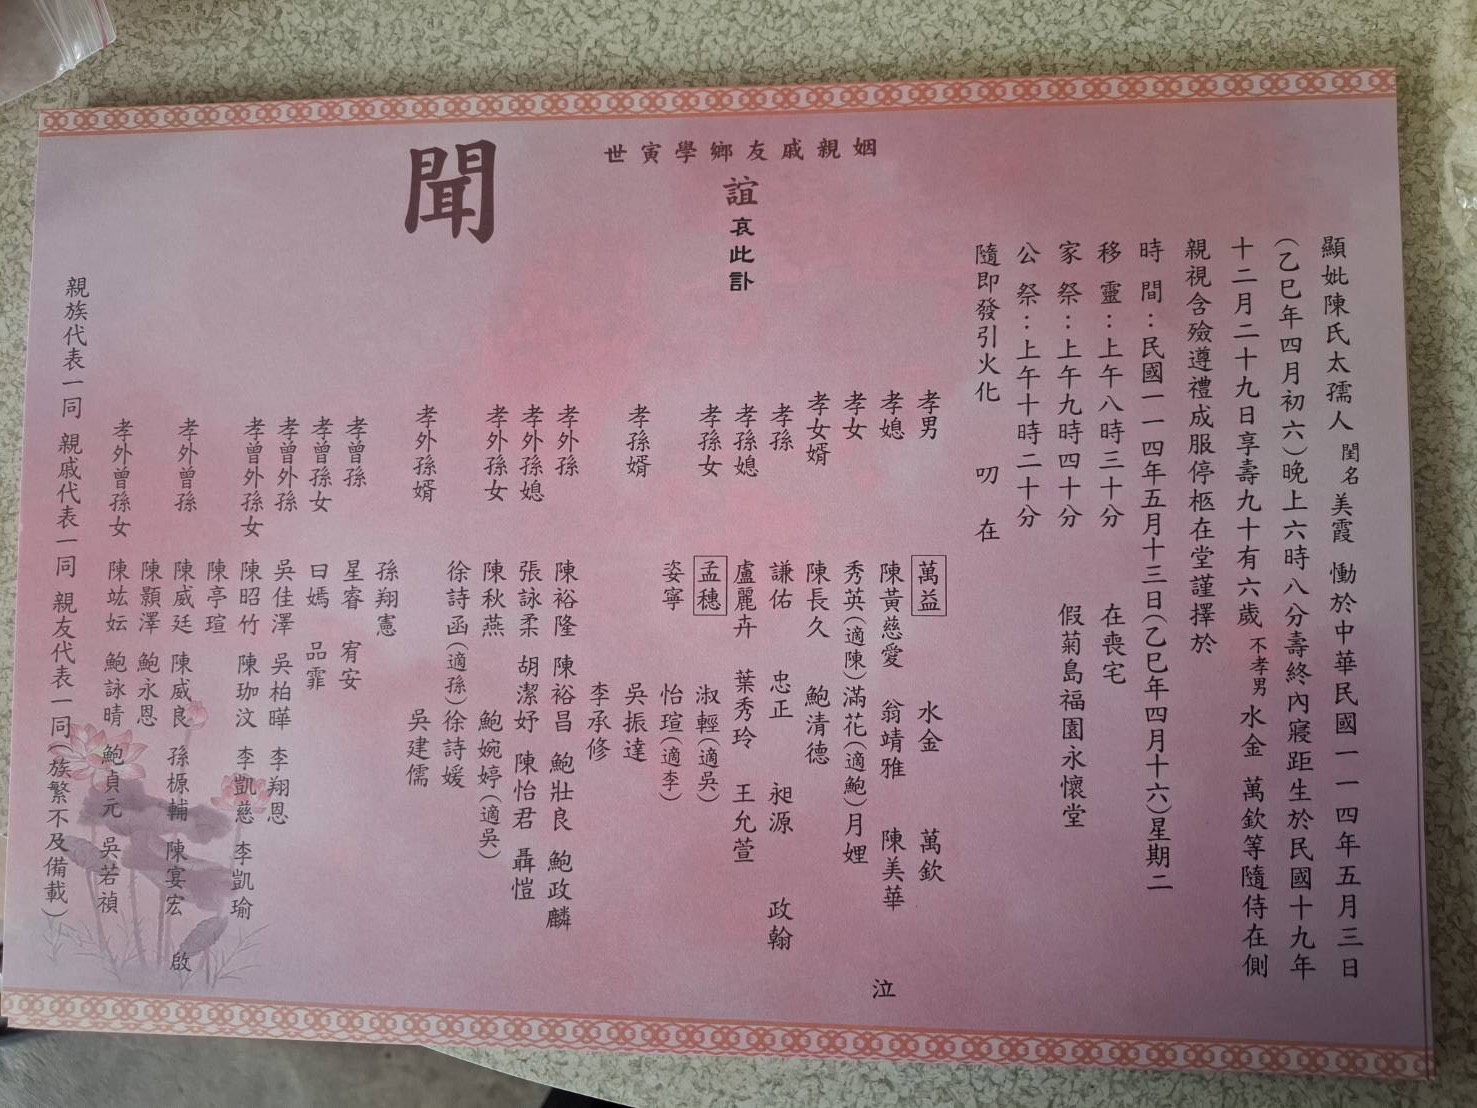 顯妣陳氏太孺人 閨名 美霞 慟於中華民國一一四年五月三日
(乙巳年四月初六)晚上六時八分壽終內寢距生於民國十九年
十二月二十九日享壽九十有六歲 不孝男 水金 萬欽等隨侍在側
親視含殮遵禮成服停柩在堂謹擇於
時間：民國一一四年五月十三日(乙巳年四月十六)星期二
移靈：上午八時三十分 在喪宅
家祭：上午九時四十分 假菊島福園永懷堂
公祭：上午十時二十分
隨即發引火化 叨在
姻親戚友鄉學寅世
誼
哀此訃
聞
孝男 萬益 水金 萬欽
孝媳 陳黃慈愛 翁靖雅 陳美華
孝女 秀英(適陳)滿花(適鮑)月娌
孝女婿 陳長久 鮑清德
孝孫 謙佑 忠正 昶源 政翰
孝孫媳 盧麗卉 葉秀玲 王允萱
孝孫女 孟穗 淑輕(適吳)
姿寧 怡瑄(適李)
孝孫婿 吳振達
李承修
孝外孫 陳裕隆 陳裕昌 鮑壯良 鮑政麟
孝外孫媳 張詠柔 胡潔妤 陳怡君 聶愷
孝外孫女 陳秋燕 鮑婉婷(適吳)
徐詩函(適孫)徐詩媛
孝外孫婿 吳建儒
孫翔憲
孝曾孫 星睿 宥安
孝曾孫女 曰嫣 品霏
孝曾外孫 吳佳澤 吳柏曄 李翔恩
孝曾外孫女 陳昭竹 陳珈汶 李凱慈 李凱瑜
陳亭瑄
孝外曾孫 陳威廷 陳威良 孫榞輔 陳宴宏
陳顥澤 鮑永恩
孝外曾孫女 陳竑妘 鮑詠晴 鮑貞元 吳若禎
泣
啟
親族代表一同 親戚代表一同 親友代表一同(族繁不及備載)